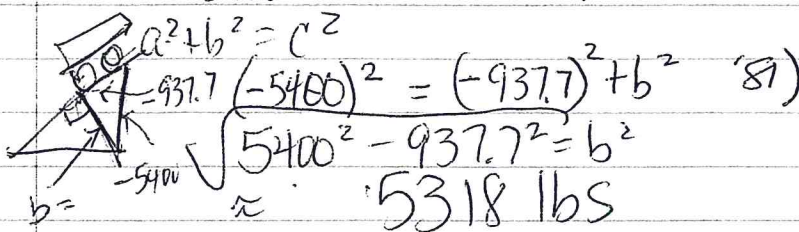 a² + b² = c²
-937.7 (-5400)² = (-937.7)² + b² 81)
√5400² - 937.7² = b²
-5400
b = ≈ 5318 lbs